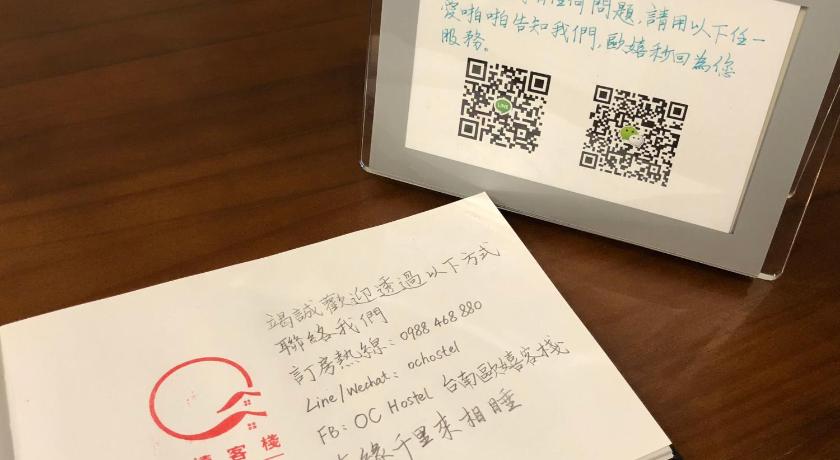 任何問題,請用以下任一
愛啪啪告知我們,歐嬉秒回為您
服務。
LINE
竭誠歡迎透過以下方式
聯絡我們
訂房熱線:0988 468 880
Line/Wechat:ochostel
FB:OC Hostel 台南歐嬉客棧
有緣千里來相睡
嬉客棧